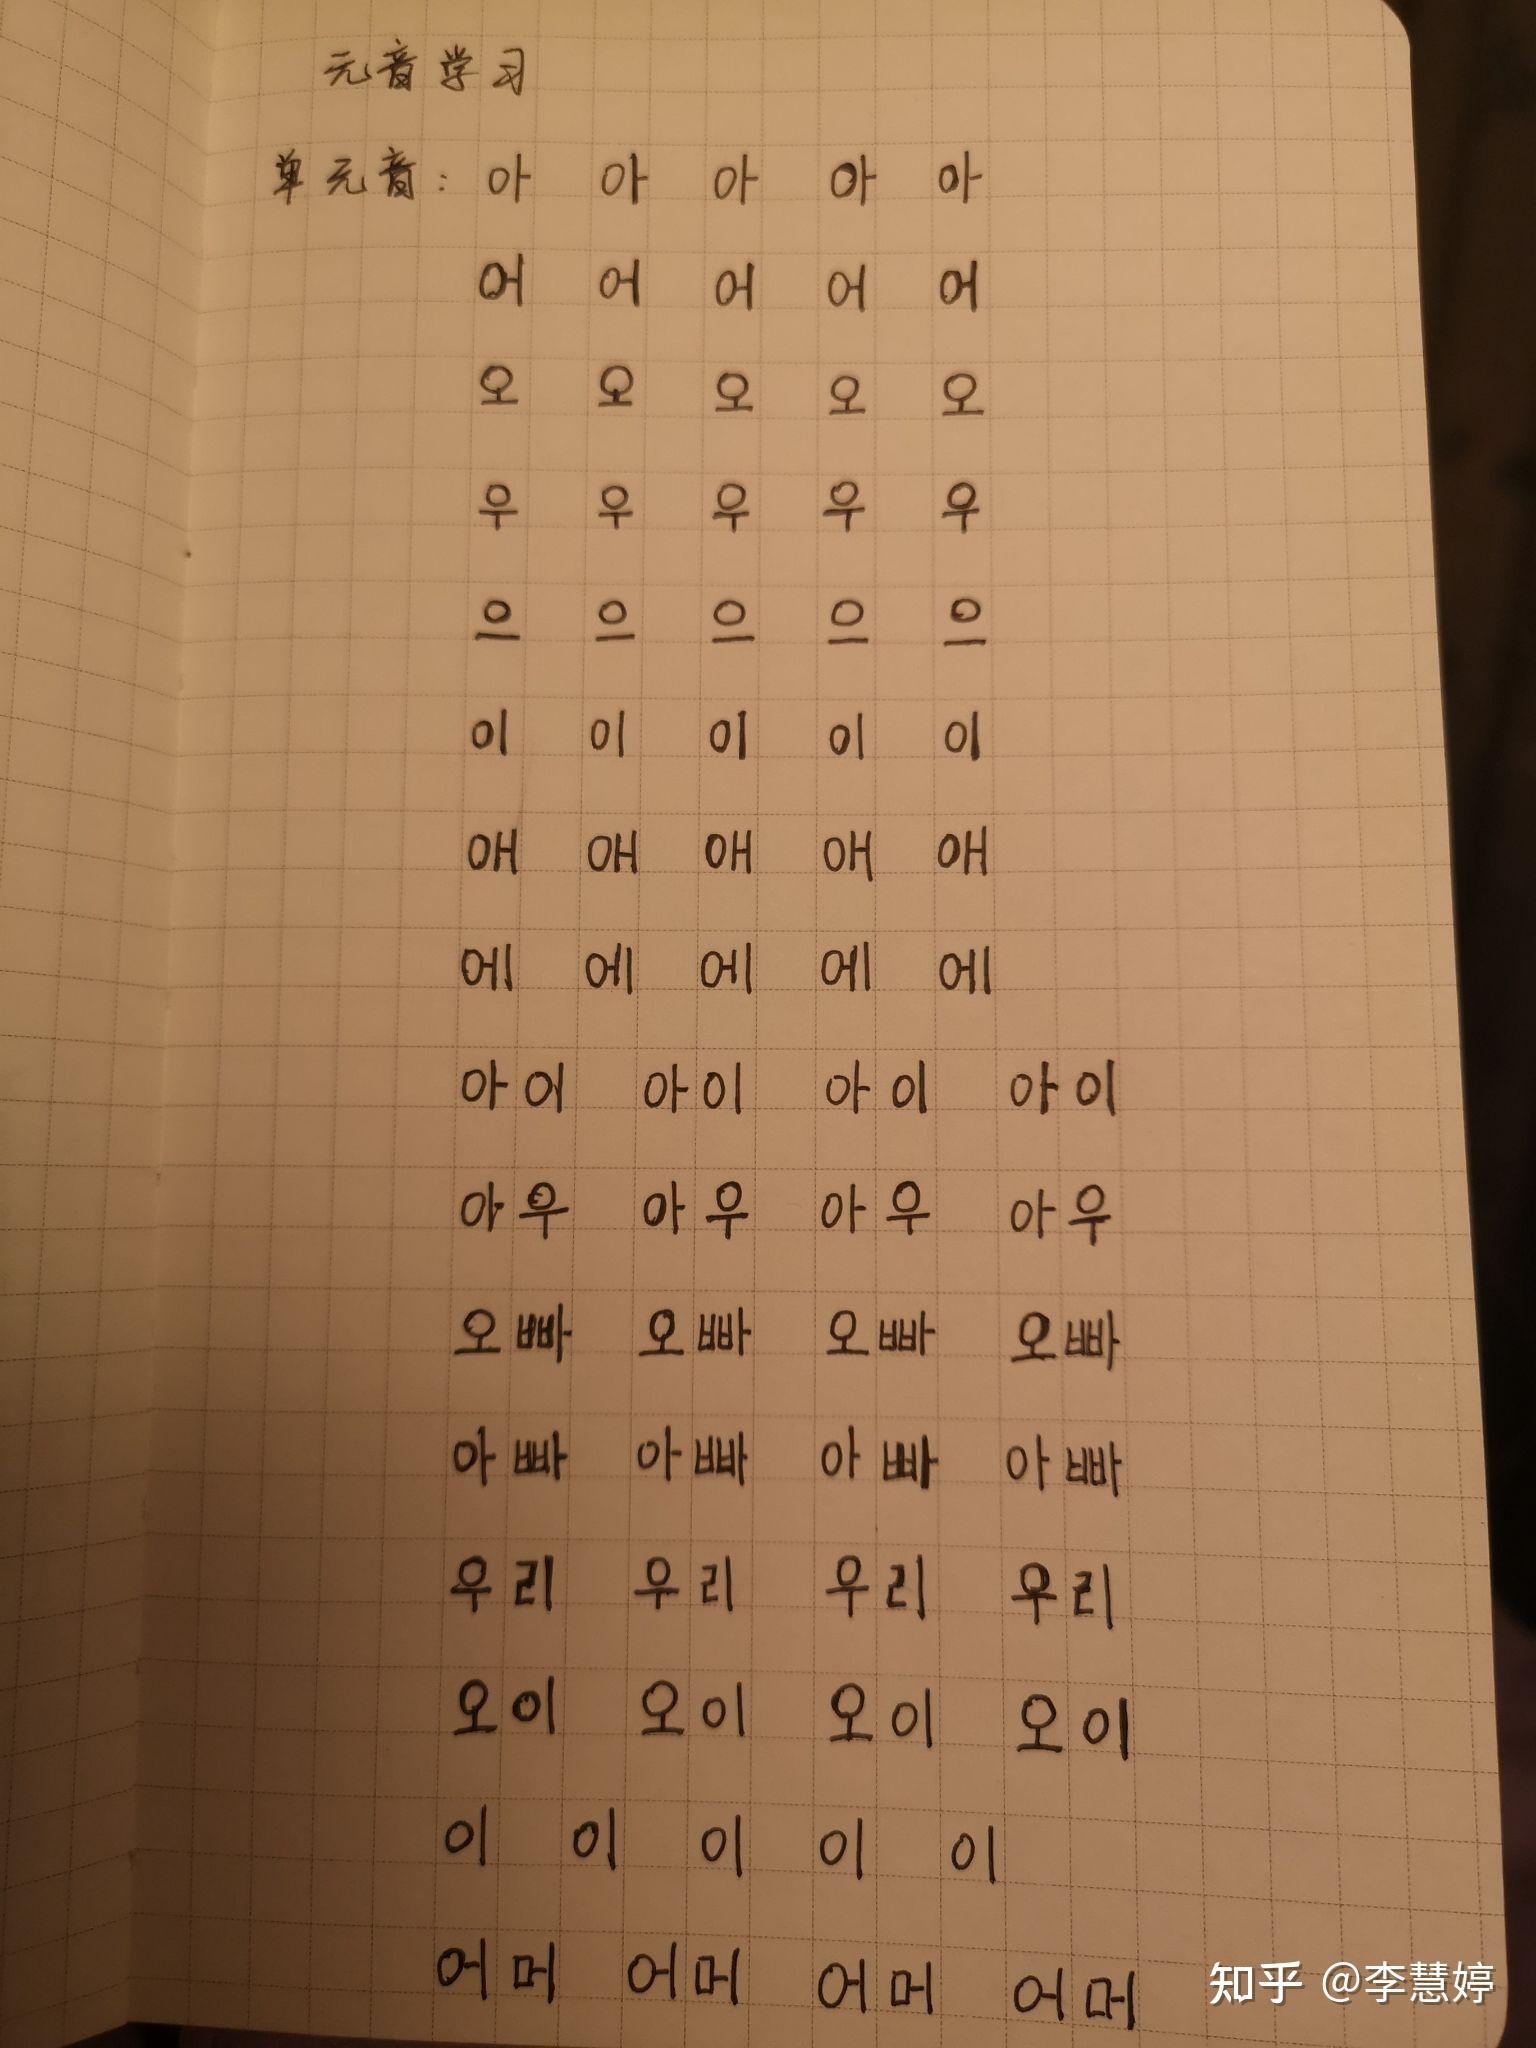 元音学习
单元音: 아 아 아 아 아
어 어 어 어 어
오 오 오 오 오
우 우 우 우 우
으 으 으 으 으
이 이 이 이 이
애 애 애 애 애
에 에 에 에 에
아이 아이 아이 아이
아우 아우 아우 아우
오빠 오빠 오빠 오빠
아빠 아빠 아빠 아빠
우리 우리 우리 우리
오이 오이 오이 오이
이 이 이 이 이
어머 어머 어머 어머
知乎 @李慧婷